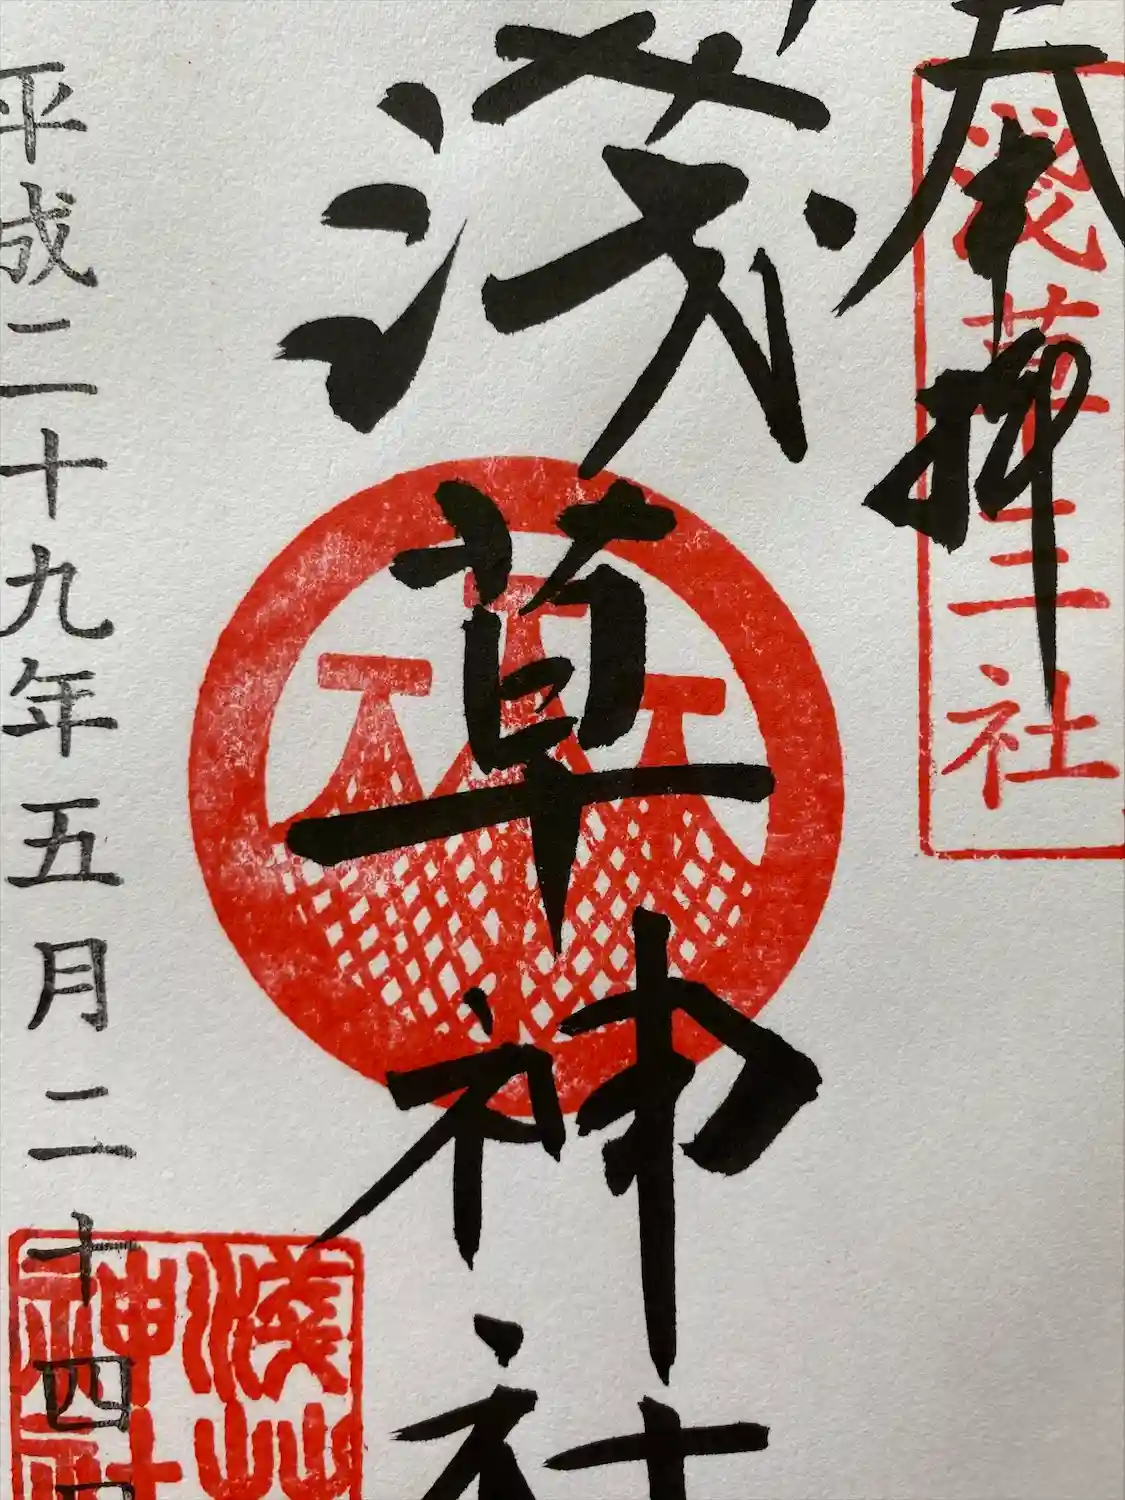 奉拝
浅草三社
浅草神社
平成二十九年五月二十四日
浅草
神社